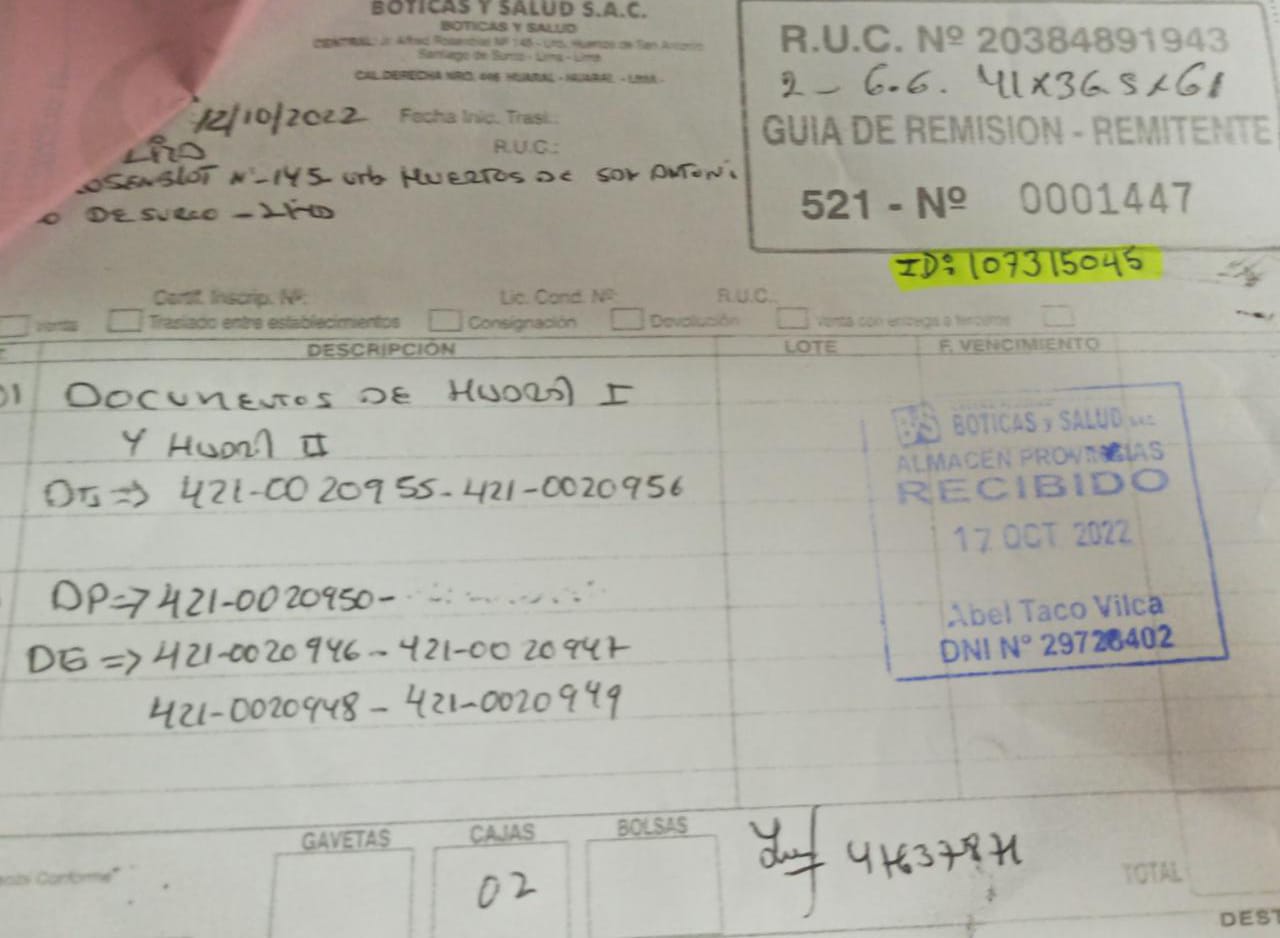 BOTICAS Y SALUD S.A.C.
BOTICAS Y SALUD
CENTRAL: Jr. Alfred Rosenblat Nº 145 - Urb. Huertos de San Antonio
Santiago de Surco - Lima - Lima
CAL.DERECHA NRO. 446 HUARAL - HUARAL - LIMA-
R.U.C. Nº 20384891943
2 - 6.6. 41x36.5x61
GUIA DE REMISION - REMITENTE
521 - Nº 0001447
ID: 107315045
12/10/2022 Fecha Inic. Trasl.:
R.U.C.:
Nº-145 Urb HUERTOS DE SAN ANTONI
DE SURCO -
Certif. Inscrip. Nº: Lic. Cond. Nº R.U.C.
venta Traslado entre establecimientos Consignación Devolución venta con entrega a terceros
DESCRIPCIÓN LOTE F. VENCIMIENTO
01 DOCUMENTOS DE HUARAL I
Y HUARAL II
=> 421-0020955-421-0020956
DP=> 421-0020950-
DE => 421-0020946-421-0020947
421-0020948-421-0020949
BS BOTICAS y SALUD S.A.C.
ALMACEN PROVINCIAS
RECIBIDO
17 OCT 2022
Abel Taco Vilca
DNI N° 29728402
GAVETAS CAJAS BOLSAS
02
Conforme"
TOTAL
DEST